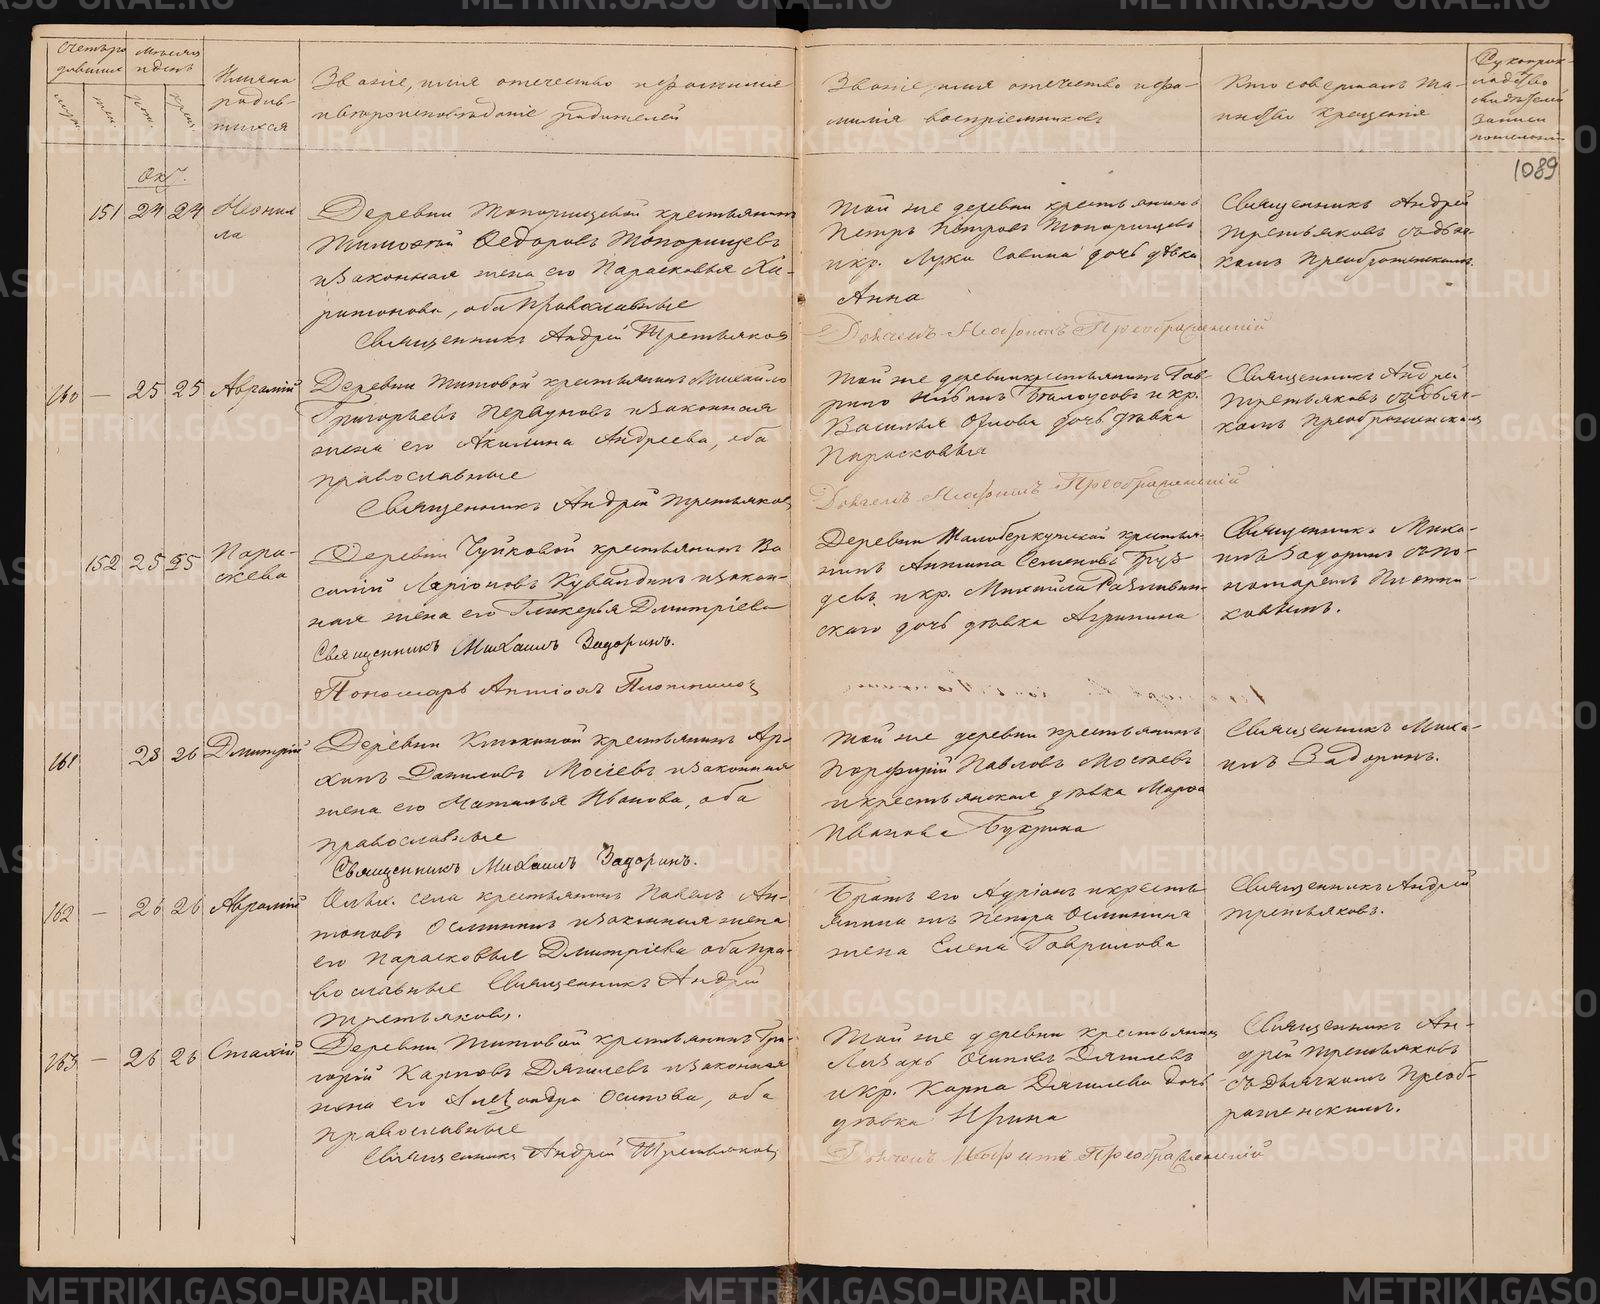 Счетъ родившихся
Месяцъ и день
Имена родив-
шихся
Званіе, имя отечество и фамилія
и вероисповѣданіе родителей
Званіе, имя отечество и фа-
милія воспріемниковъ
Кто совершалъ та-
инство крещенія
Рукоприк-
ладство
свидѣтелей
записи
1089
Окт.
151 24 24 Неонил
ла
Деревни Топорищевой крестьянинъ
Тимофей Ѳедоровъ Топорищевъ
и законная жена его Парасковья Ха-
ритонова, оба православные
Священникъ Андрей Третьяковъ
Той же деревни крестьянинъ
Петръ Петровъ Топорищевъ
и кр. Луки Савина дочь дѣвка
Анна
Дьячекъ Неофитъ Преображенскій
Священникъ Андрей
Третьяковъ съ дьяч-
комъ Преображенскимъ.
160 — 25 25 Аврамій
Деревни Титовой крестьянинъ Михайло
Григорьевъ Первуновъ и законная
жена его Акилина Андреева, оба
православные
Священникъ Андрей Третьяковъ
Той же деревни крестьянинъ Гав-
рило Белоусовъ и кр.
Василья дочь дѣвка
Парасковья
Дьячекъ Неофитъ Преображенскій
Священникъ Андрей
Третьяковъ съ дьяч-
комъ Преображенскимъ
152 25 25 Пара-
скева
Деревни Чуйковой крестьянинъ Ва
силій Ларіоновъ Кувалдинъ и закон-
ная жена его Гликерья Дмитріева
Священникъ Михаилъ Задоринъ.
Пономарь Антіохъ Плотниковъ
Деревни крестья-
нинъ Семеновъ Груз-
девъ и кр. Михаила
скаго дочь дѣвка Агрипина
Священникъ Миха-
илъ Задоринъ съ по-
номаремъ Плотни-
ковымъ.
161 28 26 Дмитрій
Деревни крестьянинъ Ар-
хипъ Даниловъ Мосѣевъ и законная
жена его Наталья Иванова, оба
православные
Священникъ Михаилъ Задоринъ.
Той же деревни крестьянинъ
Порфирій Павловъ Мосѣевъ
и крестьянская дѣвка Марѳа
Иванова Букрина
Священникъ Миха-
илъ Задоринъ.
162 — 26 26 Аврамій
села крестьянинъ Павелъ Ан-
тоновъ Осминкинъ и законная жена
его Парасковья Дмитріева оба пра-
вославные Священникъ Андрей
Третьяковъ.
Братъ его Адріанъ и кресть
янина Петра Осминина
жена Елена Гаврилова
Священникъ Андрей
Третьяковъ.
163 — 26 26 Стахій
Деревни Титовой крестьянинъ Гри-
горій Карповъ Дягилевъ и законная
жена его Александра Осипова, оба
православные
Священникъ Андрей Третьяковъ
Той же деревни крестьянинъ
Лазарь Осиповъ Дягилевъ
и кр. Карпа Дягилева дочь
дѣвка Ирина
Дьячекъ Неофитъ Преображенскій
Священникъ Ан-
дрей Третьяковъ
съ дьячкомъ Преоб-
раженскимъ.
METRIKI.GASO-URAL.RU